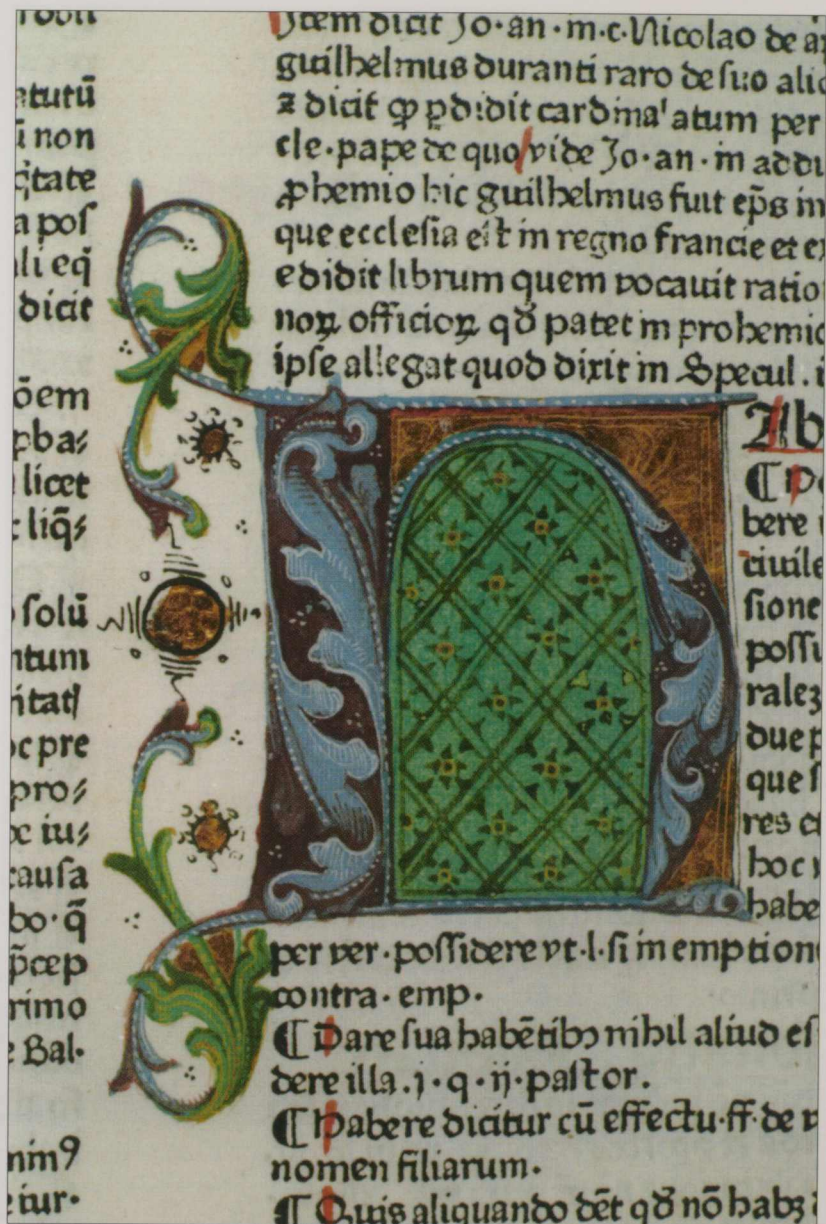 atutū
ū non
c̄tate
a pos
li eq̄
dicit
ōem
pba⸗
licet
liq̄⸗
solū
ntum
itatꝭ
oc pre
pro⸗
iu⸗
causa
bo·q̄
p̄cep
rimo
Bal·
nim9
e iur·
Item dicit Jo·an·m·c·Nicolao de
guilhelmus duranti raro de suo alic
⁊ dicit ꝙ ꝑdidit cardina'atum per
cle·pape de quo vide Jo·an·in addi
ꝓhemio hic guilhelmus fuit ep̄s in
que ecclesia est in regno francie et
edidit librum quem vocauit ratio
noꝝ officioꝝ qd̄ patet in prohemio
ipse allegat quod dixit in Specul.
H
Ab
¶
bere
ciuile
sione
possi
ralez
due
que
res
hoc
habe
per ver·possidere vt·l·si in emption
contra·emp·
¶ Dare sua habētibꝫ nihil aliud es
dere illa.j·q·ij·pastor.
¶ Habere dicitur cū effectu·ff·de v
nomen filiarum·
¶ Quis aliquando dēt qd̄ nō habꝫ